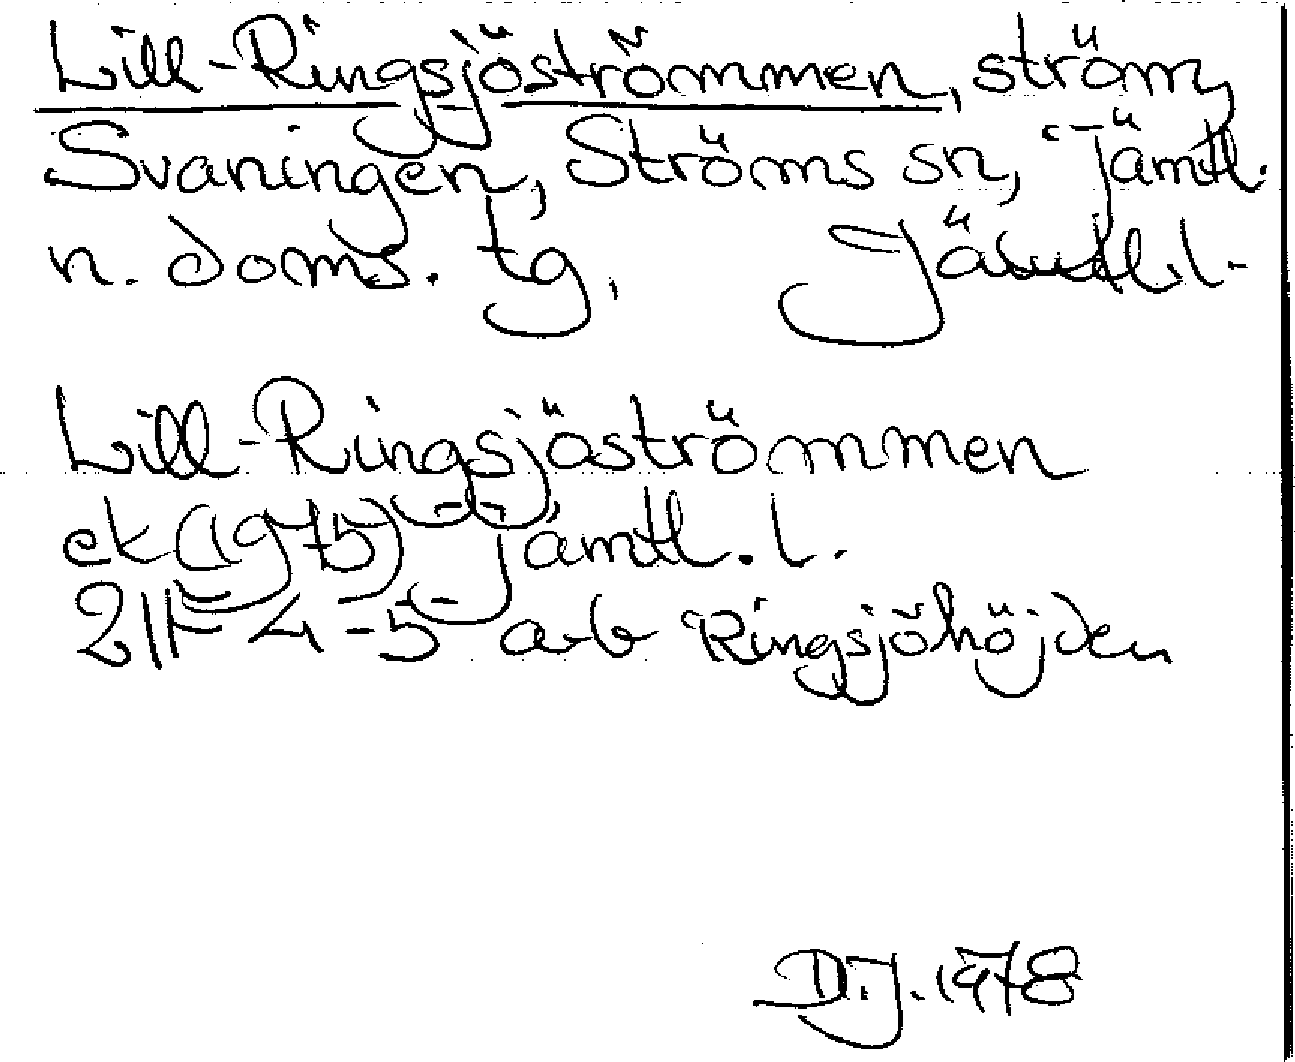 Lill-Ringsjöströmmen, ström,
Svaningen, Ströms sn, Jämtl.
n. doms. tg, Jämtl. l.
Lill-Ringsjöströmmen
ek (1975) Jämtl. l.
21F 4-5 a-b Ringsjöhöjden
D.J. 1978